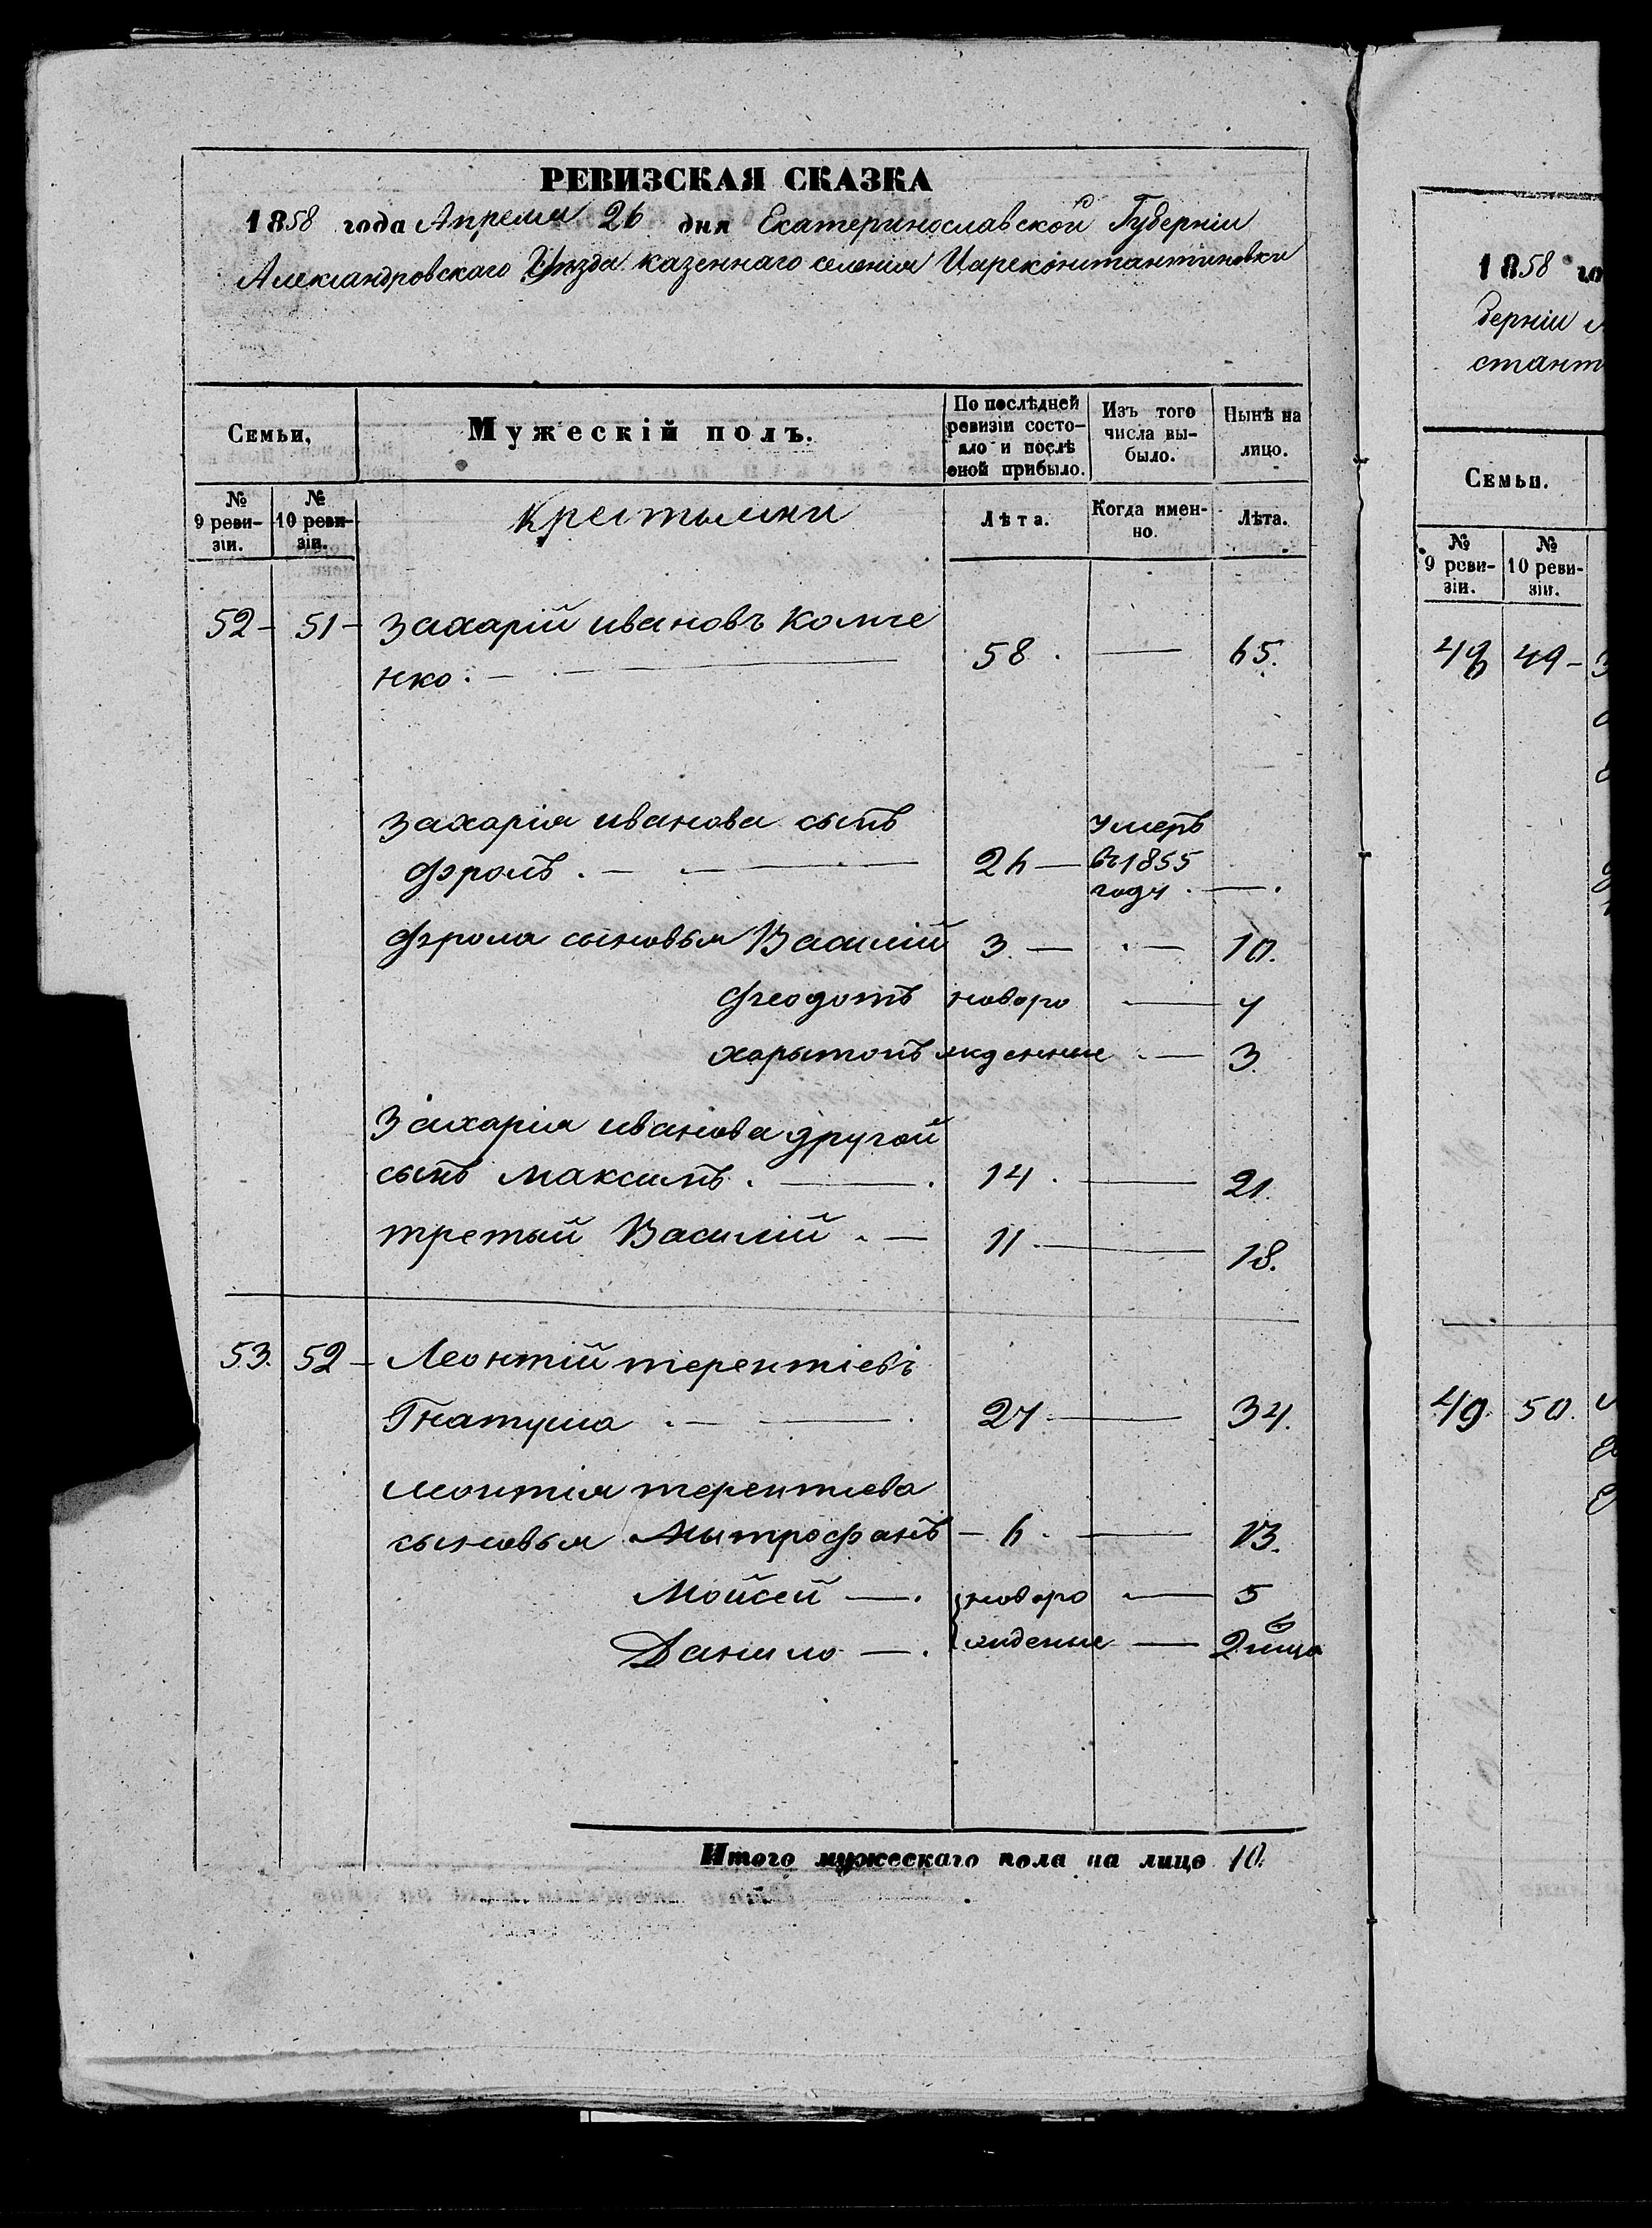 РЕВИЗСКАЯ СКАЗКА
1858 года Апреля 26 дня Екатеринославской Губерніи
Александровскаго Уѣзда казеннаго селенія Цареконстантиновки
Семьи,
Мужескій полъ.
По послѣдней ревизіи состояло и послѣ оной прибыло.
Изъ того числа выбыло.
Нынѣ на лицо.
№ 9 ревизіи.
№ 10 ревизіи.
Крестьяни
Лѣта.
Когда именно.
Лѣта.
52 - 51 - Захарій ивановъ Колпе
нко. - 58. — 65.
Захарія иванова сынъ
Фролъ. - 26 — умеръ в 1855 году. —.
Фрола сыновья Василій 3. — — 10.
Феодотъ новоро — 4
харытонъ жденные — 3.
Захарія иванова другой
сынъ Максимъ. — 14. — 21.
третый Василій. — 11. — 18.
53. 52 - Леонтій терентіевъ
Гнатуша — 27. — 34.
леонтія терентиева
сыновья Мытрофанъ - 6. — 13.
Мойсей —. новоро — 5
Данило —. жденые — 2
Итого мужескаго пола на лицо 10.
1858 го
берніи
стант
Семьи.
№ 9 ревизіи.
№ 10 ревизіи.
48 49 -
49. 50.